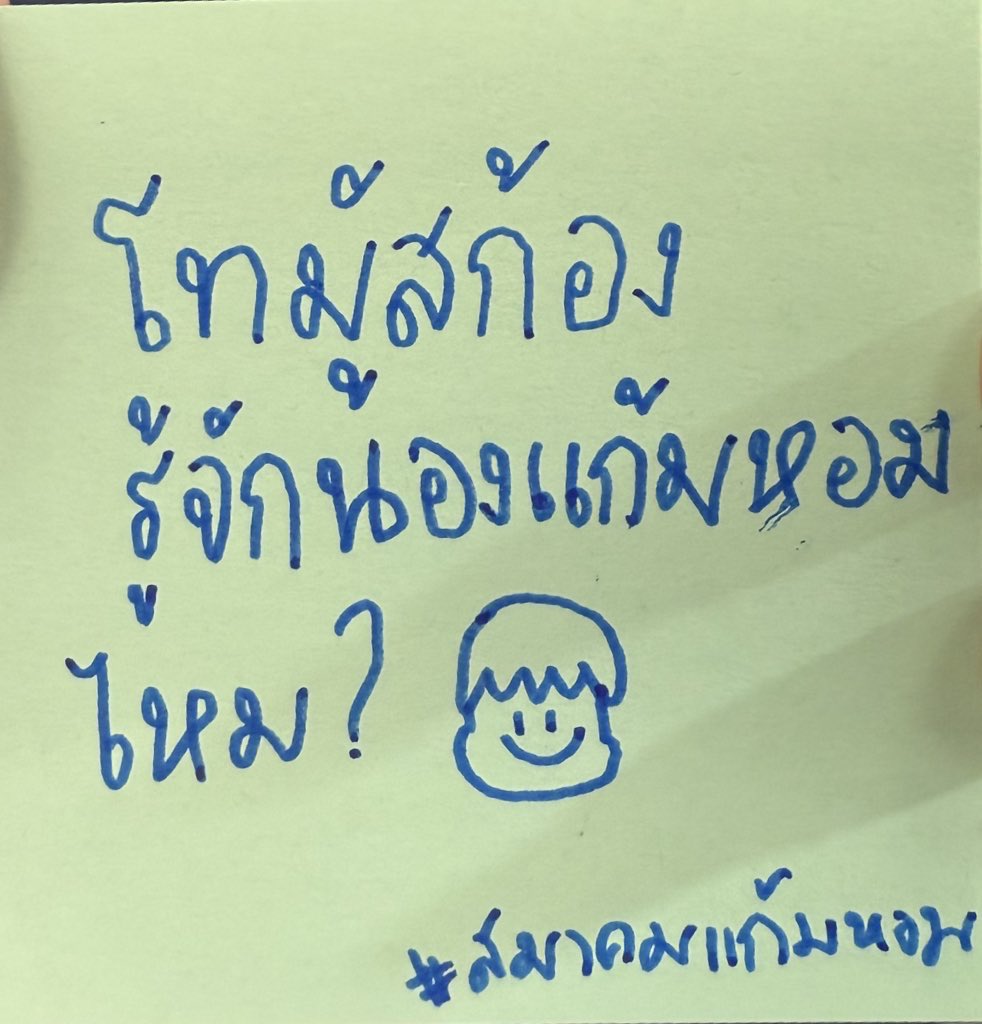 โทมู้สก้อง
รู้จักน้องแก้มหอม
ไหม?
#สมาคมแก้มหอม